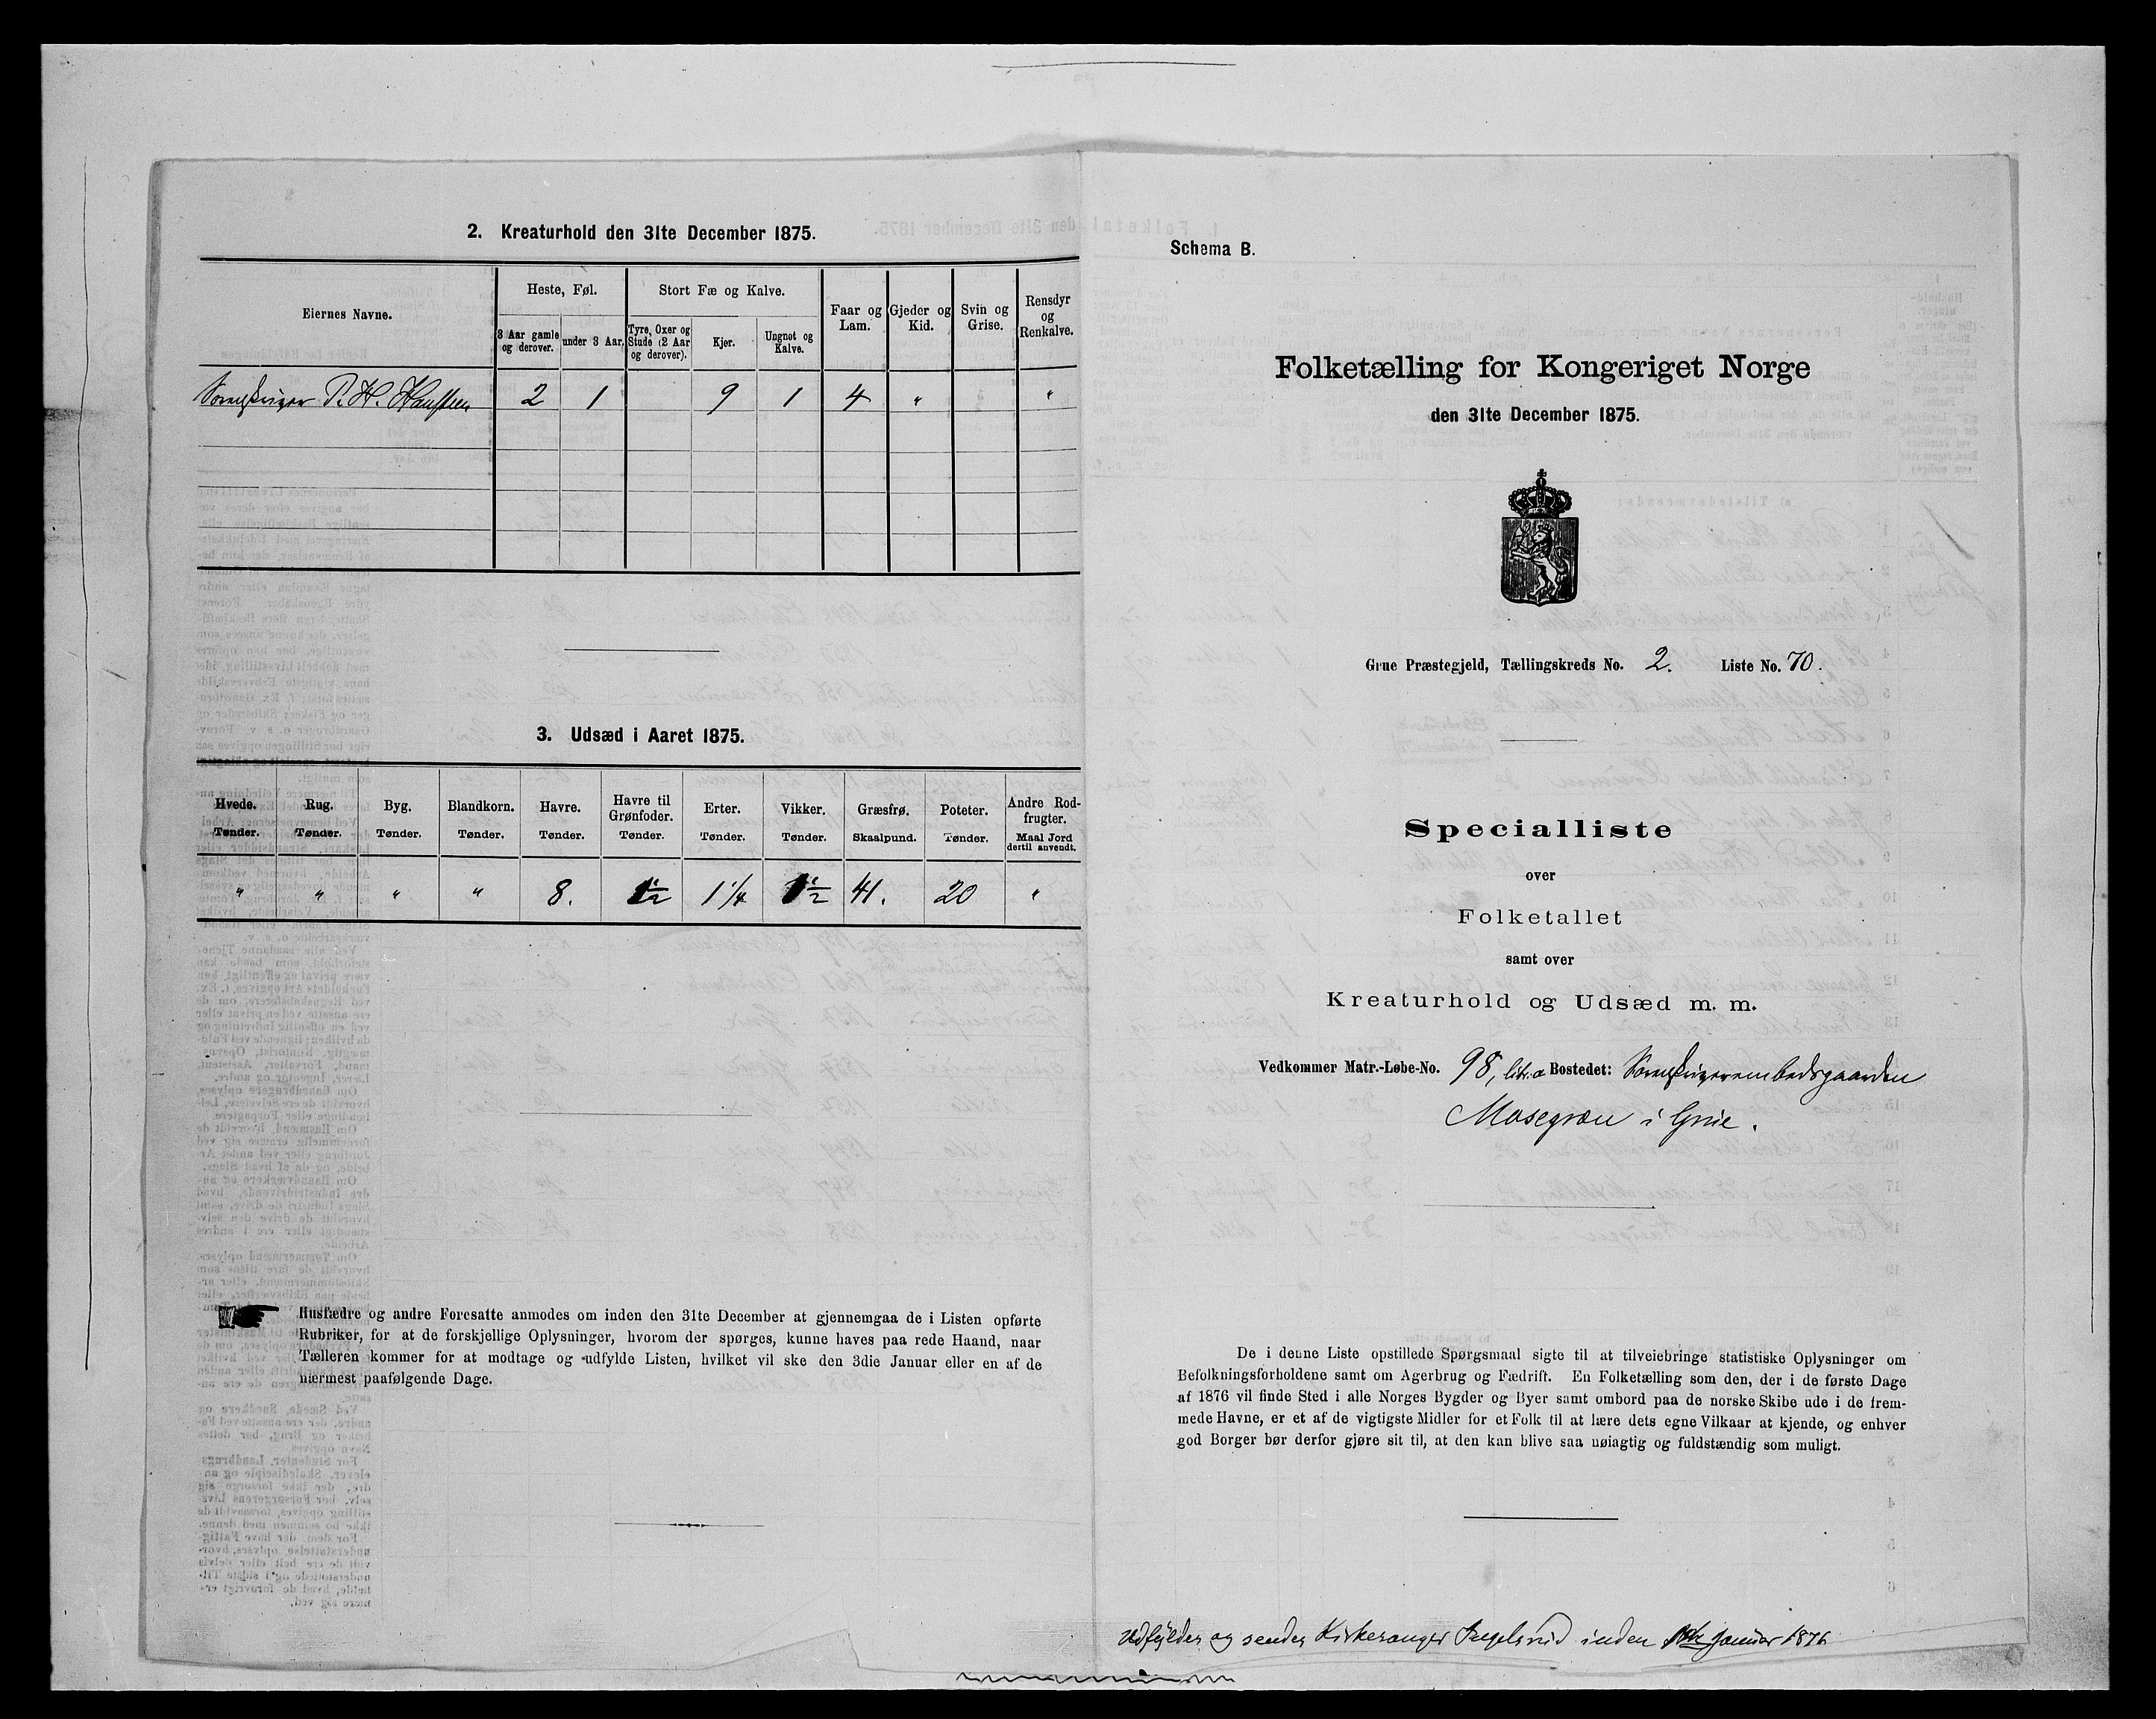 2. Kreaturhold den 31te December 1875.
Eiernes Navne.
Heste, Føl.
Stort Fæ og Kalve.
3 Aar gamle og derover.
under 3 Aar.
Tyre, Oxer og Stude (2 Aar og derover).
Kjer.
Ungnøt og Kalve.
Faar og Lam.
Gjeder og Kid.
Svin og Grise.
Rensdyr og Renkalve.
Sorenskriver P. H. 2 1 9 1 4 " "
3. Udsæd i Aaret 1875.
Hvede. Rug. Byg. Blandkorn. Havre. Havre til Grønfoder. Erter. Vikker. Græsfrø. Poteter. Andre Rodfrugter.
Tønder. Tønder. Tønder. Tønder. Tønder. Tønder. Tønder. Tønder. Skaalpund. Tønder. Maal Jord dertil anvendt.
" " " " 8. 1½ 1¼ 1½ 41. 20 "
Husfædre og andre Foresatte anmodes om inden den 31te December at gjennemgaa de i Listen opførte
Rubriker, for at de forskjellige Oplysninger, hvorom der spørges, kunne haves paa rede Haand, naar
Tælleren kommer for at modtage og udfylde Listen, hvilket vil ske den 3die Januar eller en af de
nærmest paafølgende Dage.
Schema B.
Folketælling for Kongeriget Norge
den 31te December 1875.
Grue Præstegjeld, Tællingskreds No. 2. Liste No. 70.
Specialliste
over
Folketallet
samt over
Kreaturhold og Udsæd m. m.
Vedkommer Matr.-Løbe-No. 98, litr. a Bostedet: Sorenskriverembedsgaarden
Mosegrøn i Grue.
De i denne Liste opstillede Spørgsmaal sigte til at tilveiebringe statistiske Oplysninger om
Befolkningsforholdene samt om Agerbrug og Fædrift. En Folketælling som den, der i de første Dage
af 1876 vil finde Sted i alle Norges Bygder og Byer samt ombord paa de norske Skibe ude i de frem-
mede Havne, er et af de vigtigste Midler for et Folk til at lære dets egne Vilkaar at kjende, og enhver
god Borger bør derfor gjøre sit til, at den kan blive saa nøiagtig og fuldstændig som muligt.
Udfyldes og sendes Kirkesanger Ingelsrud inden Januar 1876